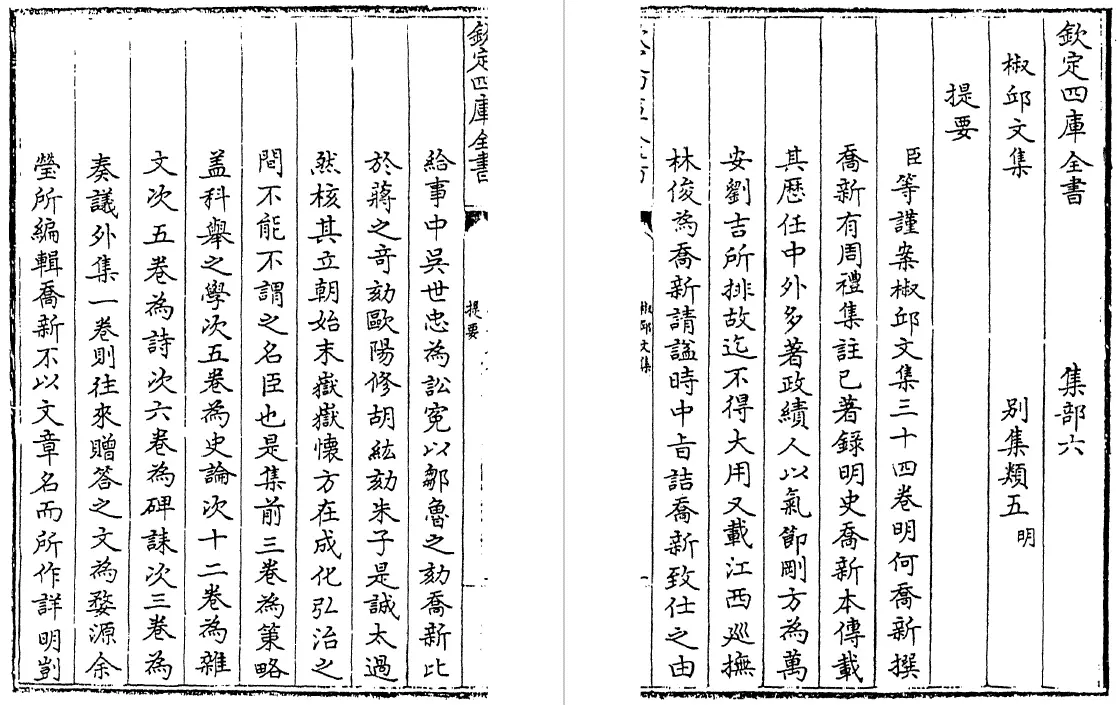 欽定四庫全書 集部六
椒邱文集 別集類五 明
提要
臣等謹案椒邱文集三十四卷明何喬新撰
喬新有周禮集註已著錄明史喬新本傳載
其歷任中外多著政績人以氣節剛方為萬
安劉吉所排故迄不得大用又載江西巡撫
林俊為喬新請諡時中旨詰喬新致仕之由
椒邱文集
欽定四庫全書
提要
給事中吳世忠為訟寃以鄒魯之劾喬新比
於蔣之竒劾歐陽修胡紘劾朱子是誠太過
然核其立朝始末嶽嶽懷方在成化弘治之
間不能不謂之名臣也是集前三卷為策略
盖科舉之學次五卷為史論次十二卷為雜
文次五卷為詩次六卷為碑誄次三卷為
奏議外集一卷則往來贈答之文為婺源余
瑩所編輯喬新不以文章名而所作詳明剴